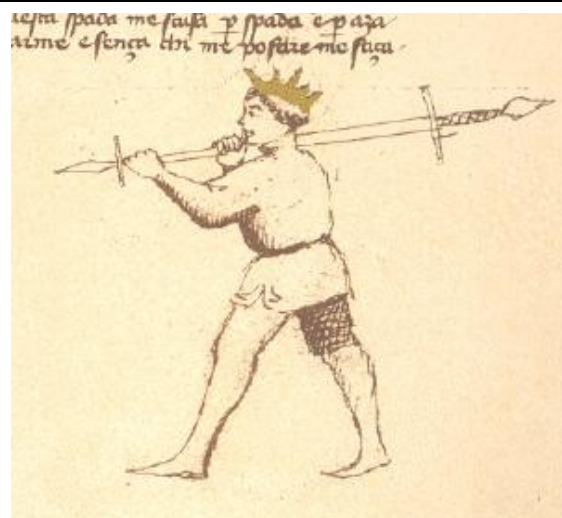 uesta spada me scusa ꝑ spada e ꝑ aza
arme e sença chi me po fare me faça.